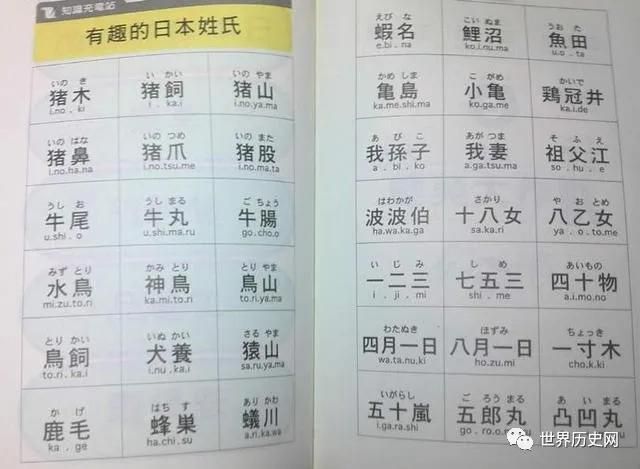 知識充電站
有趣的日本姓氏
いの き
猪木
i.no . ki
い かい
猪飼
i . ka.i
いの やま
猪山
i.no.ya.ma
いの はな
猪鼻
i.no.ha.na
いの つめ
猪爪
i.no.tsu.me
いの また
猪股
i.no.ma.ta
うし お
牛尾
u.shi . o
うし まる
牛丸
u.shi.ma.ru
ご ちょう
牛腸
go.cho.o
みず とり
水鳥
mi.zu.to.ri
かみ とり
神鳥
ka.mi.to.ri
とり やま
鳥山
to.ri.ya.ma
とり かい
鳥飼
to.ri . ka.i
いぬ かい
犬養
i.nu . ka.i
さる やま
猿山
sa.ru.ya.ma
か げ
鹿毛
ka . ge
はち す
蜂巢
ha.chi . su
あり かわ
蟻川
a.ri.ka.wa
えび な
蝦名
e.bi . na
こい ぬま
鯉沼
ko.i.nu.ma
うお た
魚田
u.o . ta
かめ しま
亀島
ka.me.shi.ma
こ がめ
小亀
ko.ga.me
かいで
鶏冠井
ka.i.de
あ び こ
我孫子
a . bi . ko
あが つま
我妻
a.ga.tsu.ma
そ ふ え
祖父江
so . hu . e
はわかが
波波伯
ha.wa.ka.ga
さかり
十八女
sa.ka.ri
や おとめ
八乙女
ya . o .to.me
い じ み
一二三
i . ji . mi
し め
七五三
shi . me
あいもの
四十物
a.i.mo.no
わたぬき
四月一日
wa.ta.nu.ki
ほずみ
八月一日
ho.zu.mi
ちょっき
一寸木
cho.k.ki
いがらし
五十嵐
i.ga.ra.shi
ご ろう まる
五郎丸
go . ro.o
あ い まる
凸凹丸
世界历史网